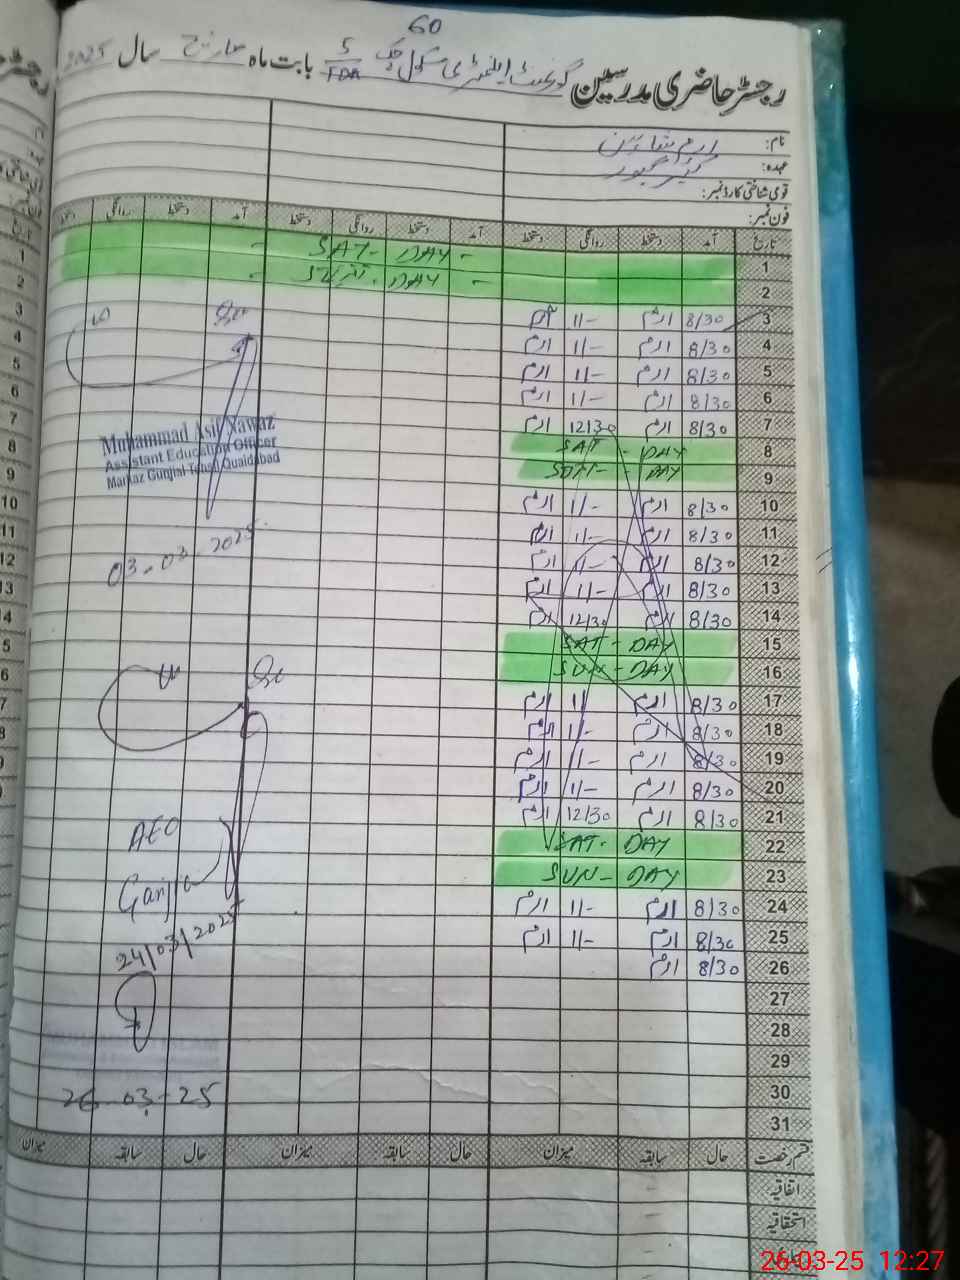 60
رجسٹر حاضری مدرسین گورنمنٹ ایلیمنٹری سکول چک 5/TDA بابت ماہ مارچ سال 2025
نام: ارم شاہین
عہدہ: کیئر گیور
قومی شناختی کارڈ نمبر:
فون نمبر:
تاریخ آمد دستخط روانگی دستخط آمد دستخط روانگی دستخط آمد دستخط روانگی دستخط
1 SAT - DAY -
2 DAY -
3 8/30 ارم 11/- ارم
4 8/30 ارم 11/- ارم
5 8/30 ارم 11/- ارم
6 8/30 ارم 11/- ارم
7 8/30 ارم 12/30 ارم
8 SAT - DAY
9 SUN - DAY
10 8/30 ارم 1/- ارم
11 8/30 ارم 1/- ارم
12 8/30 ارم 11/- ارم
13 8/30 ارم 11/- ارم
14 8/30 ارم 12/30 ارم
15 SAT - DAY
16 SUN - DAY
17 8/30 ارم 11 ارم
18 8/30 ارم 1/- ارم
19 8/30 ارم 11/- ارم
20 8/30 ارم 1/- ارم
21 8/30 ارم 12/30 ارم
22 SAT - DAY
23 SUN - DAY
24 8/30 ارم 11/- ارم
25 8/30 ارم 11/- ارم
26 8/30 ارم
27
28
29
30
31
Muhammad Asif Nawaz
Assistant Education Officer
Markaz Gunjial Tehsil Quaidabad
03-03-2025
AEO
Gunjial
24/03/2025
26-03-25
قسم رخصت حال سابقہ میزان حال سابقہ میزان حال سابقہ میزان
اتفاقیہ
استحقاقیہ
26-03-25 12:27